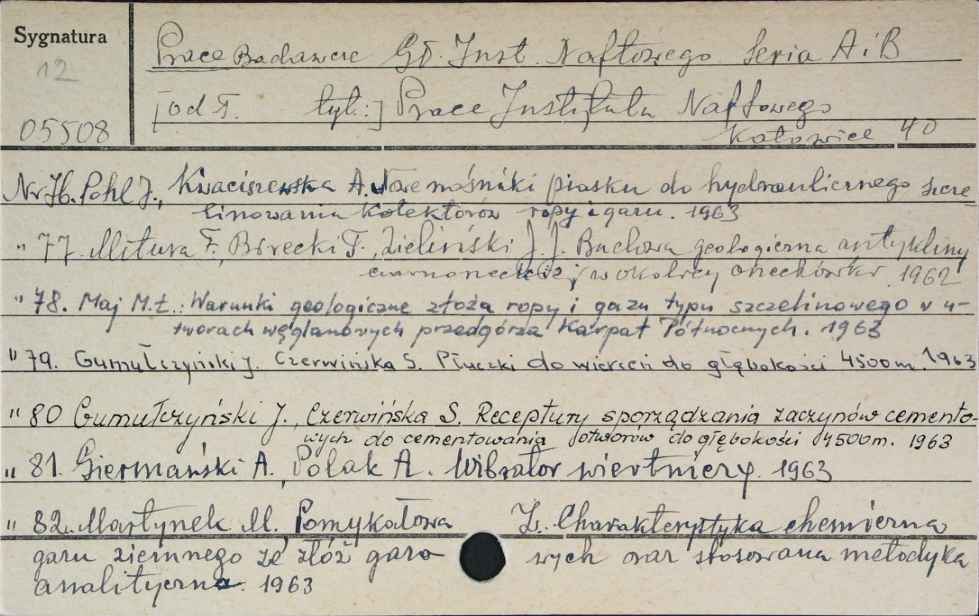 Sygnatura
12
05508
Prace Badawcze Gł. Inst. Naftowego Seria A i B
[od T. tyt.:] Prace Instytutu Naftowego
Katowice 4°
Nr 76. Pohl J., Kwaciszewska A. Nowe nośniki piasku do hydraulicznego szcze
linowania kolektorów ropy i gazu. 1963
" 77. Mitura F., Birecki T., Zieliński J. J. Budowa geologiczna antykliny
w okolicy Checówki 1962
" 78. Maj M.Ł.: Warunki geologiczne złoża ropy i gazu typu szczelinowego w u-
tworach węglanowych przedgórza Karpat Północnych. 1963
" 79. Gumułczyński J. Czerwińska S. Płuczki do wierceń do głębokości 4500m. 1963
" 80 Gumułczyński J., Czerwińska S. Receptury sporządzania zaczynów cemento-
wych do cementowania otworów do głębokości 4500m. 1963
" 81. Giermański A., Polak A. Wibrator wiertniczy. 1963
" 82. Martynek M., Pomykałowa Z. Charakterystyka chemiczna
gazu ziemnego ze złóż gazo wych oraz stosowana metodyka
analityczna. 1963